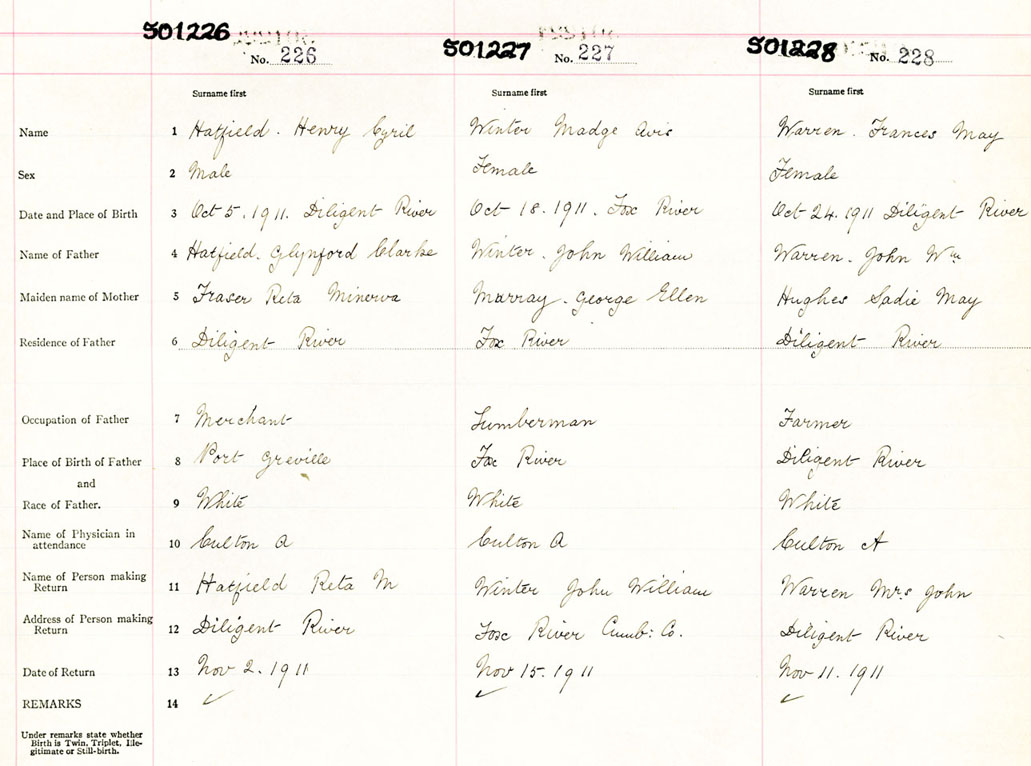 S01226 S01227 S01228
No. 226 No. 227 No. 228
Surname first Surname first Surname first
Name 1 Hatfield. Henry Cyril Winter Madge Avis Warren. Frances May
Sex 2 Male Female Female
Date and Place of Birth 3 Oct 5. 1911. Diligent River Oct 18. 1911. Fox River Oct 24. 1911 Diligent River
Name of Father 4 Hatfield. Glynford Clarke Winter. John William Warren. John Wm
Maiden name of Mother 5 Fraser Reta Minerva Murray. George Ellen Hughes Sadie May
Residence of Father 6 Diligent River Fox River Diligent River
Occupation of Father 7 Merchant Lumberman Farmer
Place of Birth of Father 8 Port Greville Fox River Diligent River
and
Race of Father. 9 White White White
Name of Physician in
attendance 10 Culton A Culton A Culton A
Name of Person making
Return 11 Hatfield Reta M Winter John William Warren Mrs John
Address of Person making
Return 12 Diligent River Fox River Cumb: Co. Diligent River
Date of Return 13 Nov 2. 1911 Nov 15. 1911 Nov 11. 1911
REMARKS 14 ✓ ✓ ✓
Under remarks state whether
Birth is Twin, Triplet, Ille-
gitimate or Still-birth.